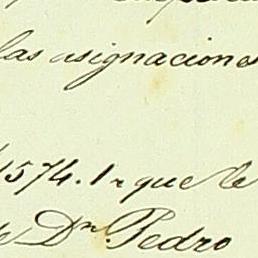 las asignacione
1574. 1n que le
de Dn. Pedro